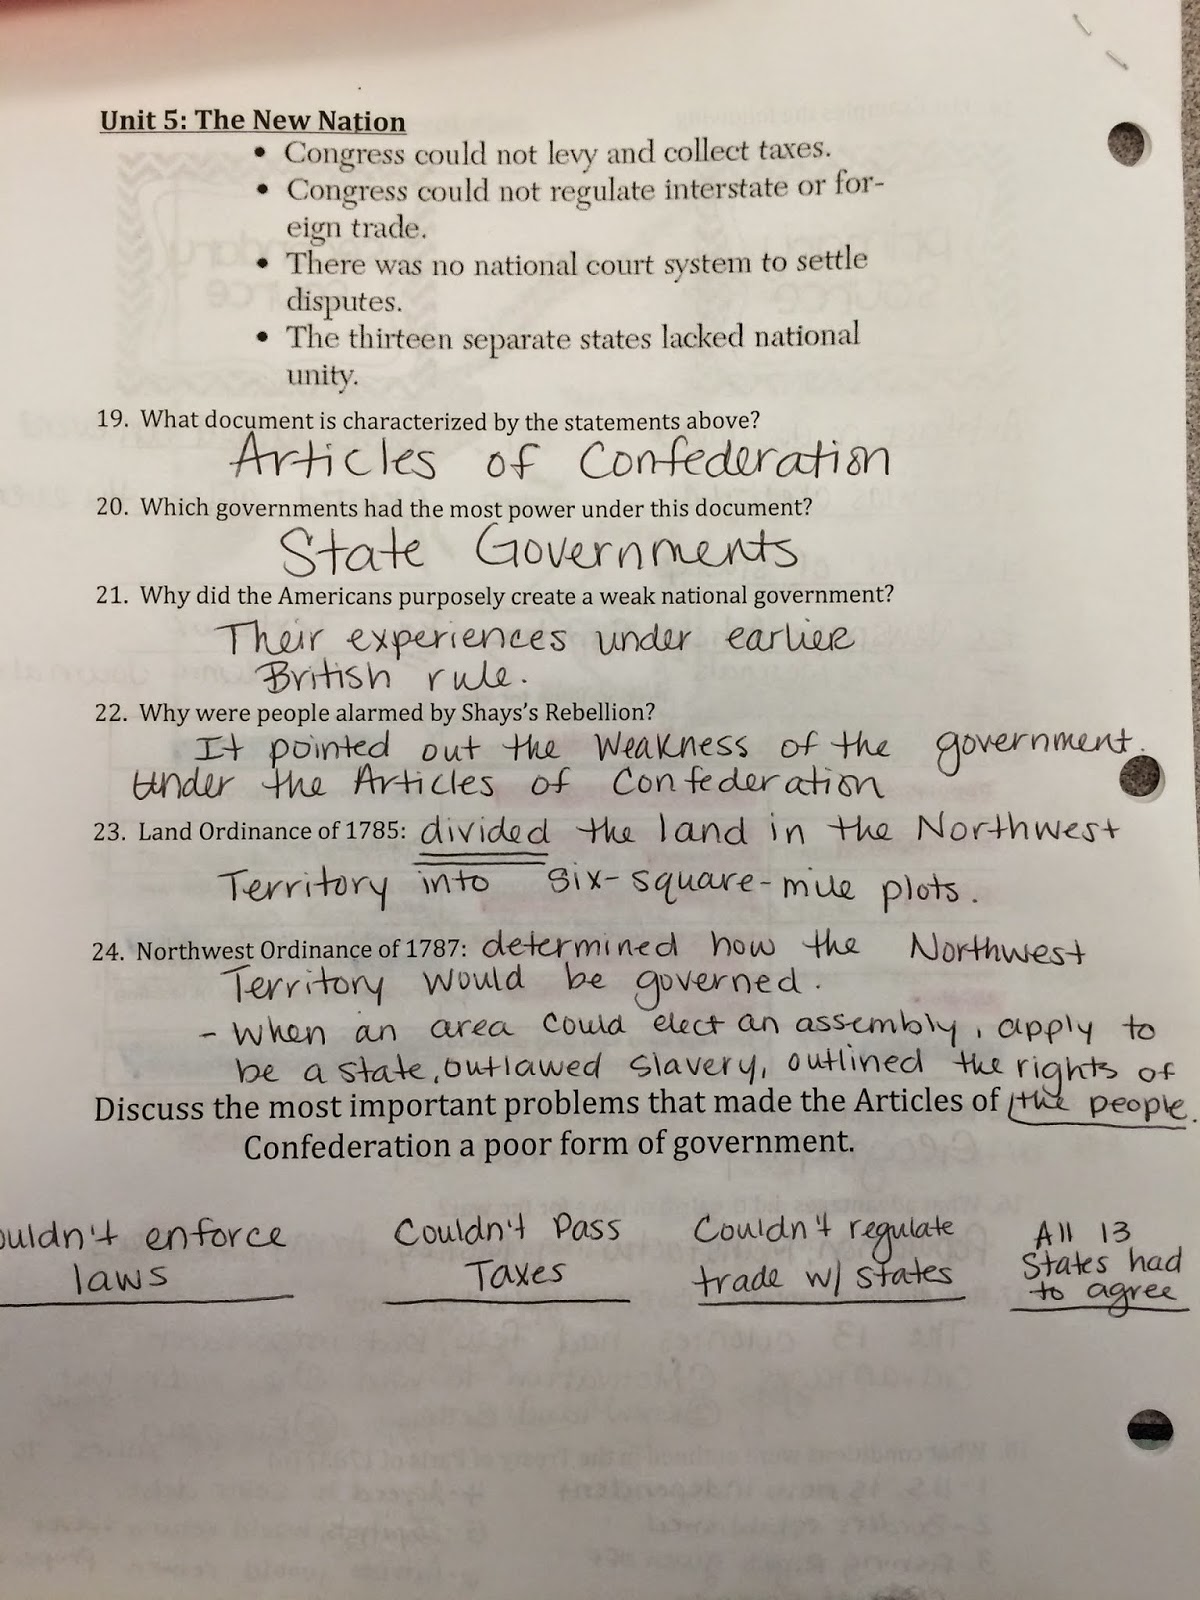 Unit 5: The New Nation
• Congress could not levy and collect taxes.
• Congress could not regulate interstate or for-
eign trade.
• There was no national court system to settle
disputes.
• The thirteen separate states lacked national
unity.
19. What document is characterized by the statements above?
Articles of Confederation
20. Which governments had the most power under this document?
State Governments
21. Why did the Americans purposely create a weak national government?
Their experiences under earlier
British rule.
22. Why were people alarmed by Shays's Rebellion?
It pointed out the weakness of the government.
under the Articles of Confederation
23. Land Ordinance of 1785: divided the land in the Northwest
Territory into six-square-mile plots.
24. Northwest Ordinance of 1787: determined how the Northwest
Territory would be governed.
- When an area could elect an assembly, apply to
be a state, outlawed slavery, outlined the rights of
Discuss the most important problems that made the Articles of the people.
Confederation a poor form of government.
ouldn't enforce Couldn't Pass Couldn't regulate All 13
laws Taxes trade w/ states States had
to agree